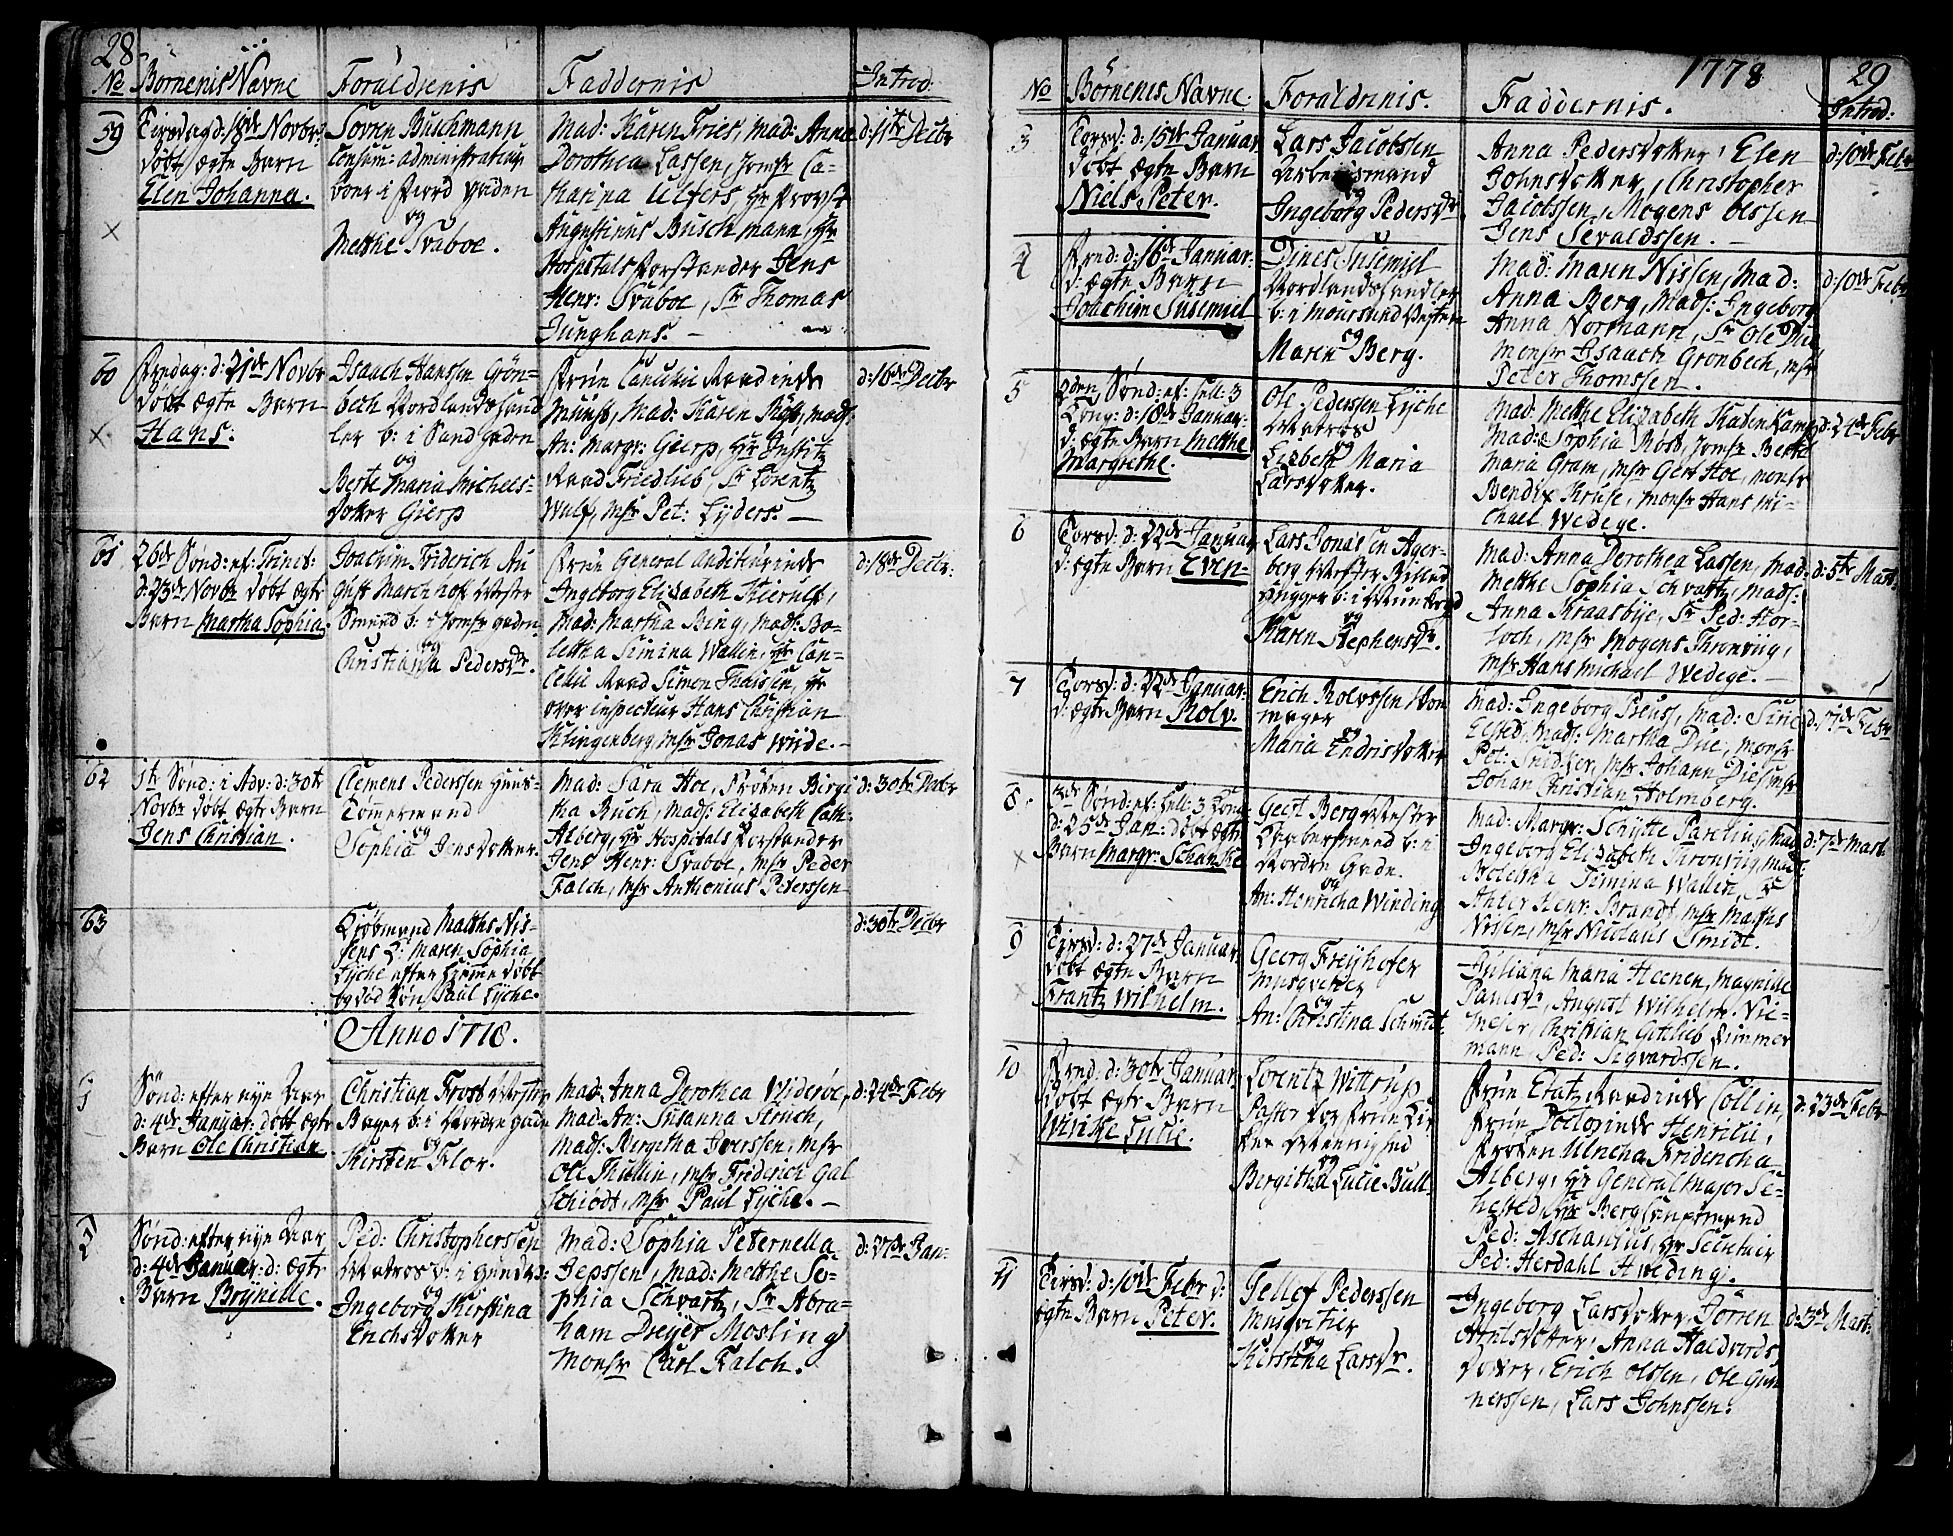 28
No Börnenis Navne Foræeldrenis Faddernis Introd:
59 Tirsdag d: 18de Novbr:
döbt ægte Barn
Elen Johanna.
Soren Buschmann
Consum: administrateur
boer i Fiord gaden
og
Metthe Svaboe.
Mad: Karen Fries, Mad: Anna
Dorothea Lassen, Jomfr Ca-
thanina Ulfers, Hr Provst
Augustinus Buschmann, Hr
Hospitals Forstander Jens
Henr: Svaboe, Sr Thomas
Junghans.
d: 11te Decbr
60 Fredag: d: 21de Novbr
döbt ægte Barn
Hans.
Isaach Hanssen Grön-
bech Nordlandshand
ler b: i Sand gaden
og
Berte Maria Michels-
dotter Gierp
Frue Cancellie Raadinde
Münst, Mad: Karen Röst, Mads:
An: Margr: Gierp, Hr Justitz
Raad Friedlieb, Sr Lorentz
Wulf, Msr Pet: Lyders.
d: 16de Decbr
61 26de Sönd: ef: Trinit:
d: 23de Novbr döbt ægte
Barn Martha Sophia
Joachim Friderich Au
gust Marchhof
Smand b: i Jomfr gaden
og
Christiana Pedersdr.
Frue General Auditeurinde
Ingeborg Elisabeth Kierulf,
Mad: Martha Bing, Mads: Bo-
lettha Simina Wallin, Hr Can-
cellie Raad Simon Thaisen, Hr
over inspecteur Hans Christian
Klingenberg, Msr Jonas Wiide.
d: 18de Decbr:
62 1te Sönd: i Adv: d: 30te
Novbr döbt ægte Barn
Jens Christian.
Clemens Pederssen Huus-
Tömmermand
og
Sophia Jensdotter.
Mad: Sara Hoe, Fröken Birgi
tha Buch, Mads: Elizabeth Cath:
Alberg, Hr Hospitals Forstander
Jens Henr: Svaboe, Msr Peder
Falch, Msr Anthonius Pederssen
d: 30te Decbr
63 Kiöbmand Matths Nis-
sens H: Maren Sophia
Lyche efter hieme döbt
og död Sön Paul Lyche.
d: 30te Decbr
Anno 1778.
1 Sönd: efter nye Aar
d: 4de Januar: döbt ægte
Barn Ole Christian
Christian Frost
Bager b: i Nordre gade
og
Kirsten Flor.
Mad: Anna Dorothea Wideröe,
Mad: An: Susanna Struch,
Mads: Bergitha Iverssen, Msr
Ole Thullin, Msr Friderich Gal
Schiödt, Msr Paul Lyche.
d: 24de Febr
2 Sönd: efter nye Aar
d: 4de Januar: d: ægte
Barn Brynille.
Ped: Christopherssen
Matros
og
Ingeborg Kirstina
Erichsdotter
Mad: Sophia Peternella
Jepssen, Mad: Metthe So-
phia Schvartz, Sr Abra-
ham Dreyer Mosling
Monsr Carl Falch.
d: 27de Jan:
1778 29
No Börnenis Navne. Foræeldrenis. Faddernis. Introd:
3 Torsd: d: 15de Januar:
döbt ægte Barn
Niels Peter.
Lars Jacobssen
Arbeidsmand
og
Ingeborg Pedersdr
Anna Pedersdotter, Elen
Johnsdotter, Christopher
Jacobssen, Mogens Olssen
Jens Sevaldssen.
d: 10de Febr
4 Fred: d: 16de Januar:
d: ægte Barn
Joachim Susemiel
Dines Susemiel
Nordlandshandler
og
Maren Berg.
Mad: Maren Nissen, Mad:
Anna Berg, Mads: Ingeborg
Anna Normann, Sr Ole Die
Monsr Isaach Gronbech, Msr
Peter Thomssen.
d: 10de Febr
5 2den Sönd: ef: Hell: 3
Kong: d: 18de Januar:
d: ægte Barn Metthe
Margrethe.
Ole Pederssen Lyche
Matros
og
Lisbeth Maria
Larsdotter.
Mad: Metthe Elizabeth Katenkamp
Mad: Sophia Rost, Jomfr Berte
Maria Gram, Msr Gert Hoe, Monsr
Bendix Kruse, Monsr Hans Mi-
chael Wedege.
d: 24de Febr
6 Torsd: d: 22de Januar
d: ægte Barn Even.
Lars Jonassen Ager-
berg Mester Billed
hugger
og
Karen Stephensdr.
Mad: Anna Dorothea Lassen, Mad:
Metthe Sophia Schvattz, Mads:
Anna Kraasbye, Sr Ped: Hor-
loch, Msr Mogens Thronviig,
Msr Hans Michael Wedege.
d: 5te Mart:
7 Torsd: d: 22de Januar:
d: ægte Barn Rolv.
Erich Rolvssen Vog
mager
og
Maria Endrisdotter
Mad: Ingeborg Preus, Mad: Sirie
Elsted, Mads: Martha Die, Monsr
Pet: Snidker, Msr Johann Die, Msr
Johan Christian Holmberg.
d: 17de Febr
8. 3de Sönd: ef: Hell: 3 Kong:
d: 25de Jan: döbt ægte
Barn Margr: Schanke
Geert Berg Mester
Garbersmand b: i
Nordre Gade.
og
An: Henricha Winding
Mad: Margr: Schytte Parelius, Mad
Ingeborg Elisabeth Thronviig, Mads:
Boletha Simina Wallin, Sr
Ahler Henr: Brandt, Msr Matths
Nissen, Msr Nicolaus Smidt.
d: 7de Mart:
9 Tirsd: d: 27de Januar:
döbt ægte Barn
Frantz Wilhelm.
Georg Freyhofer
Musqvetier
og
An: Christina Schmidt
Juliana Maria Heenen, Magnilde
Paulsdr, August Wilhelm Nie-
meier, Christian Gottlieb Zimmer
mann, Ped: Sigvardssen.
10 Fred: d: 30te Januar
döbt ægte Barn
Wiviche Lucie.
Lorentz Wittrup
Pastor for Frue Kir
kes Menighed
og
Bergitha Lucie Bull.
Frue Etatz Raadinde Collin,
Henrilie,
Fröken Ulricha Fridericha
Alberg, Hr General Major Se-
hested, Hr Bergshauptmand
Ped: Aschanius, Hr Secretair
Ped: Herdahl Hveding.
d: 23de Febr
11 Tirsd: d: 10de Febr d:
ægte Barn Peter.
Tellef Pederssen
Musqvetier
og
Kirstina Larsdr.
Ingeborg Larsdotter, Jören
Arntsdotter, Anna Haldvords
dotter, Erich Olssen, Ole Gun
nerssen, Lars Johnssen.
d: 3de Mart: